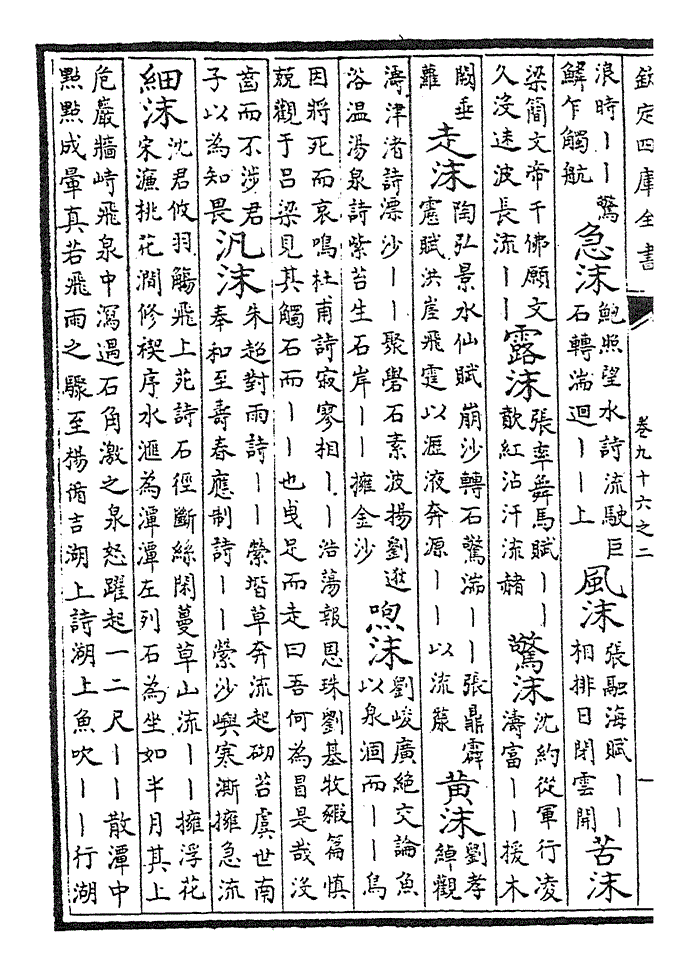 欽定四庫全書
卷九十六之二
一
浪時丨丨驚
鱗乍觸航
急沫
鮑照望水詩流駛巨
石轉湍迴丨丨上
風沫
張融海賦丨丨
相排日閉雲開
苦沫
梁簡文帝千佛願文
久沒迷波長流丨丨
露沫
張率舞馬賦丨丨
散紅沾汗流赭
驚沫
沈約從軍行凌
濤富丨丨援木
闕垂
蘿
走沫
陶弘景水仙賦崩沙轉石驚湍丨丨張鼎霹
靂賦洪崖飛霆以涯液奔源丨丨以流
黃沫
劉孝
綽觀
濤津渚詩漂沙丨丨聚礐石素波揚劉逖
浴温湯泉詩紫苔生石岸丨丨擁金沙
喣沫
劉峻廣絕交論魚
以泉涸而丨丨鳥
因將死而哀鳴杜甫詩寂寥相丨丨浩蕩報恩珠劉基牧豭篇慎
兢觀于呂梁見其觸石而丨丨也曳足而走曰吾何為冒是哉沒
齒而不涉君
子以為知畏
汎沫
朱超對雨詩丨丨縈堦草奔流起砌苔虞世南
奉和至壽春應制詩丨丨縈沙嶼寒澌擁急流
細沫
沈君攸羽觴飛上苑詩石徑斷絲閑蔓草山流丨丨擁浮花
宋濂桃花澗修禊序水滙為潭潭左列石為坐如半月其上
危巖牆峙飛泉中瀉遇石角激之泉怒躍起一二尺丨丨散潭中
點點成暈真若飛雨之驟至楊脩吉湖上詩湖上魚吹丨丨行湖